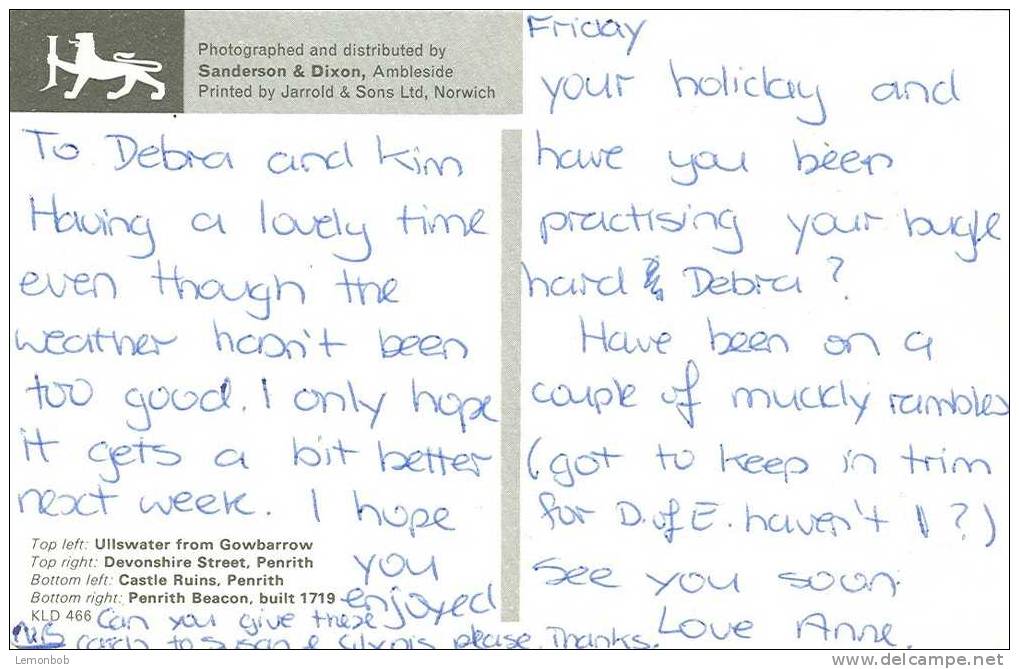 Photographed and distributed by
Sanderson & Dixon, Ambleside
Printed by Jarrold & Sons Ltd, Norwich
To Debra and Kim
Having a lovely time
even though the
weather hasn't been
too good. I only hope
it gets a bit better
next week. I hope
you
enjoyed
Friday
your holiday and
have you been
practising your bugle
hard & Debra?
Have been on a
couple of muckly rambles
(got to keep in trim
for D.of E. haven't I?)
See you soon
Love Anne.
Top left: Ullswater from Gowbarrow
Top right: Devonshire Street, Penrith
Bottom left: Castle Ruins, Penrith
Bottom right: Penrith Beacon, built 1719
KLD 466
Can you give these
NB cards to Susan & Glynis please. Thanks.
Lemonbob
www.delcampe.net